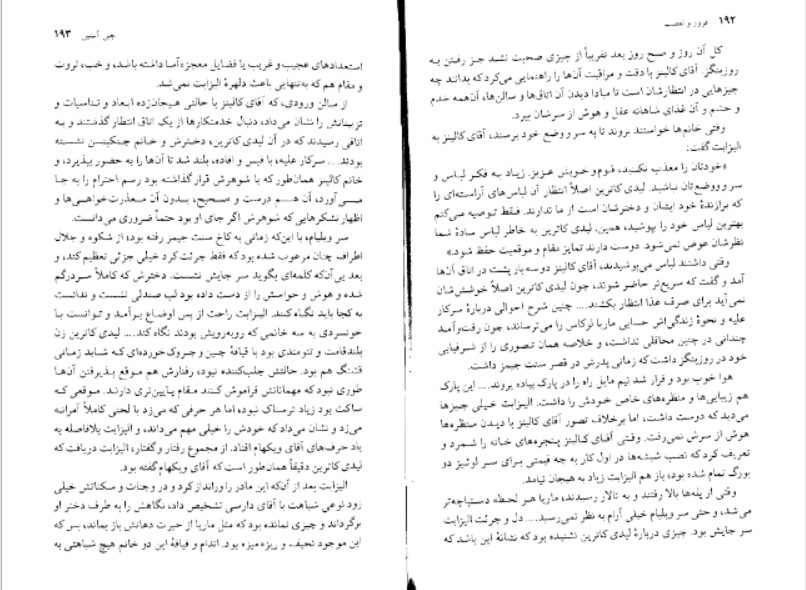 ۱۹۲ غرور و تعصب
کل آن روز و صبح روز بعد تقریباً از چیزی صحبت نشد جز رفتن به
روزینگز. آقای کالینز با دقت و مراقبت آن‌ها را راهنمایی می‌کرد که بدانند چه
چیزهایی در انتظارشان است تا مبادا دیدن آن اتاق‌ها و سالن‌ها، آن‌همه خدم
و حشم و آن غذای شاهانه عقل و هوش از سرشان ببرد.
وقتی خانم‌ها خواستند بروند تا به سر و وضع خود برسند، آقای کالینز به
الیزابت گفت:
«خودتان را معذب نکنید، قوم‌و‌خویش عزیز. زیاد به فکر لباس و
سر و وضع‌تان نباشید. لیدی کاترین اصلاً انتظار آن لباس‌های آراسته‌ای را
که برازندهٔ خود ایشان و دخترشان است از ما ندارند. فقط توصیه می‌کنم
بهترین لباس خود را بپوشید، همین. لیدی کاترین به خاطر لباس سادهٔ شما
نظرشان عوض نمی‌شود. دوست دارند تمایز مقام و موقعیت حفظ شود.»
وقتی داشتند لباس می‌پوشیدند، آقای کالینز دو سه بار پشت در اتاق آن‌ها
آمد و گفت که سریع‌تر حاضر شوند، چون لیدی کاترین اصلاً خوشش‌شان
نمی‌آید برای صرف غذا انتظار بکشند.... چنین شرح احوالی دربارهٔ سرکار
علیه و نحوهٔ زندگی‌اش حسابی ماریا لوکاس را می‌ترساند، چون رفت‌وآمد
چندانی در چنین محافلی نداشت، و خلاصه همان تصوری را از شرفیابی
خود در روزینگز داشت که زمانی پدرش در قصر سنت جیمز داشت.
هوا خوب بود و قرار شد نیم مایل راه را در پارک پیاده بروند.... این پارک
هم زیبایی‌ها و منظره‌های خاص خودش را داشت. الیزابت خیلی چیزها
می‌دید که دوست داشت، اما برخلاف تصور آقای کالینز با دیدن منظره‌ها
هوش از سرش نمی‌رفت. وقتی آقای کالینز پنجره‌های خانه را شمرد و
تعریف کرد که نصب شیشه‌ها در اول کار به چه قیمتی برای سر لوئیز دو
بورگ تمام شده بود، باز هم الیزابت زیاد به هیجان نیامد.
وقتی از پله‌ها بالا رفتند و به تالار رسیدند، ماریا هر لحظه دستپاچه‌تر
می‌شد، و حتی سر ویلیام خیلی آرام به نظر نمی‌رسید.... دل و جرئت الیزابت
سر جایش بود. چیزی دربارهٔ لیدی کاترین نشنیده بود که نشانهٔ این باشد که
جین آستین ۱۹۳
استعدادهای عجیب و غریب یا فضایل معجزه‌آسا داشته باشد، و خب، ثروت
و مقام هم که به‌تنهایی باعث دلهرهٔ الیزابت نمی‌شد.
از سالن ورودی، که آقای کالینز با حالتی هیجان‌زده ابعاد و تناسبات و
تزییناتش را نشان می‌داد، دنبال خدمتکارها از یک اتاق انتظار گذشتند و به
اتاقی رسیدند که در آن لیدی کاترین، دخترش و خانم جنکینسن نشسته
بودند.... سرکار علیه، با فیس و افاده، بلند شد تا آن‌ها را به حضور بپذیرد، و
خانم کالینز همان‌طور که با شوهرش قرار گذاشته بود رسم احترام را به جا
می‌آورد، آن هم درست و صحیح، بدون آن معذرت‌خواهی‌ها و
اظهار تشکرهایی که شوهرش اگر جای او بود حتماً ضروری می‌دانست.
سر ویلیام، با این‌که زمانی به کاخ سنت جیمز رفته بود، از شکوه و جلال
اطراف چنان مرعوب شده بود که فقط جرئت کرد خیلی جزئی تعظیم کند، و
بعد بی‌آن‌که کلمه‌ای بگوید سر جایش نشست. دخترش که کاملاً سردرگم
شده و هوش و حواسش را از دست داده بود لب صندلی نشست و ندانست
به کجا باید نگاه کند. الیزابت راحت از پس اوضاع برآمد و توانست با
خونسردی به سه خانمی که روبه‌رویش بودند نگاه کند.... لیدی کاترین زن
بلندقامت و تنومندی بود با قیافهٔ چین و چروک‌خورده‌ای که شاید زمانی
قشنگ هم بود. حالتش جلب‌کننده نبود، رفتارش هم موقع پذیرفتن آن‌ها
طوری نبود که مهمانانش فراموش کنند مقام پایین‌تری دارند. موقعی که
ساکت بود زیاد ترسناک نبود، اما هر حرفی که می‌زد با لحنی کاملاً آمرانه
می‌زد و نشان می‌داد که خودش را خیلی مهم می‌داند، و الیزابت بلافاصله به
یاد حرف‌های آقای ویکهام افتاد. از مجموع رفتار و گفتار، الیزابت دریافت که
لیدی کاترین دقیقاً همان‌طور است که آقای ویکهام گفته بود.
الیزابت بعد از آن‌که این مادر را ورانداز کرد و در وجنات و سکناتش خیلی
زود نوعی شباهت با آقای دارسی تشخیص داد، نگاهش را به طرف دختر او
برگرداند و چیزی نمانده بود که مثل ماریا از حیرت دهانش باز بماند، بس که
این موجود نحیف و ریزه‌میزه بود. اندام و قیافهٔ این دو خانم هیچ شباهتی به